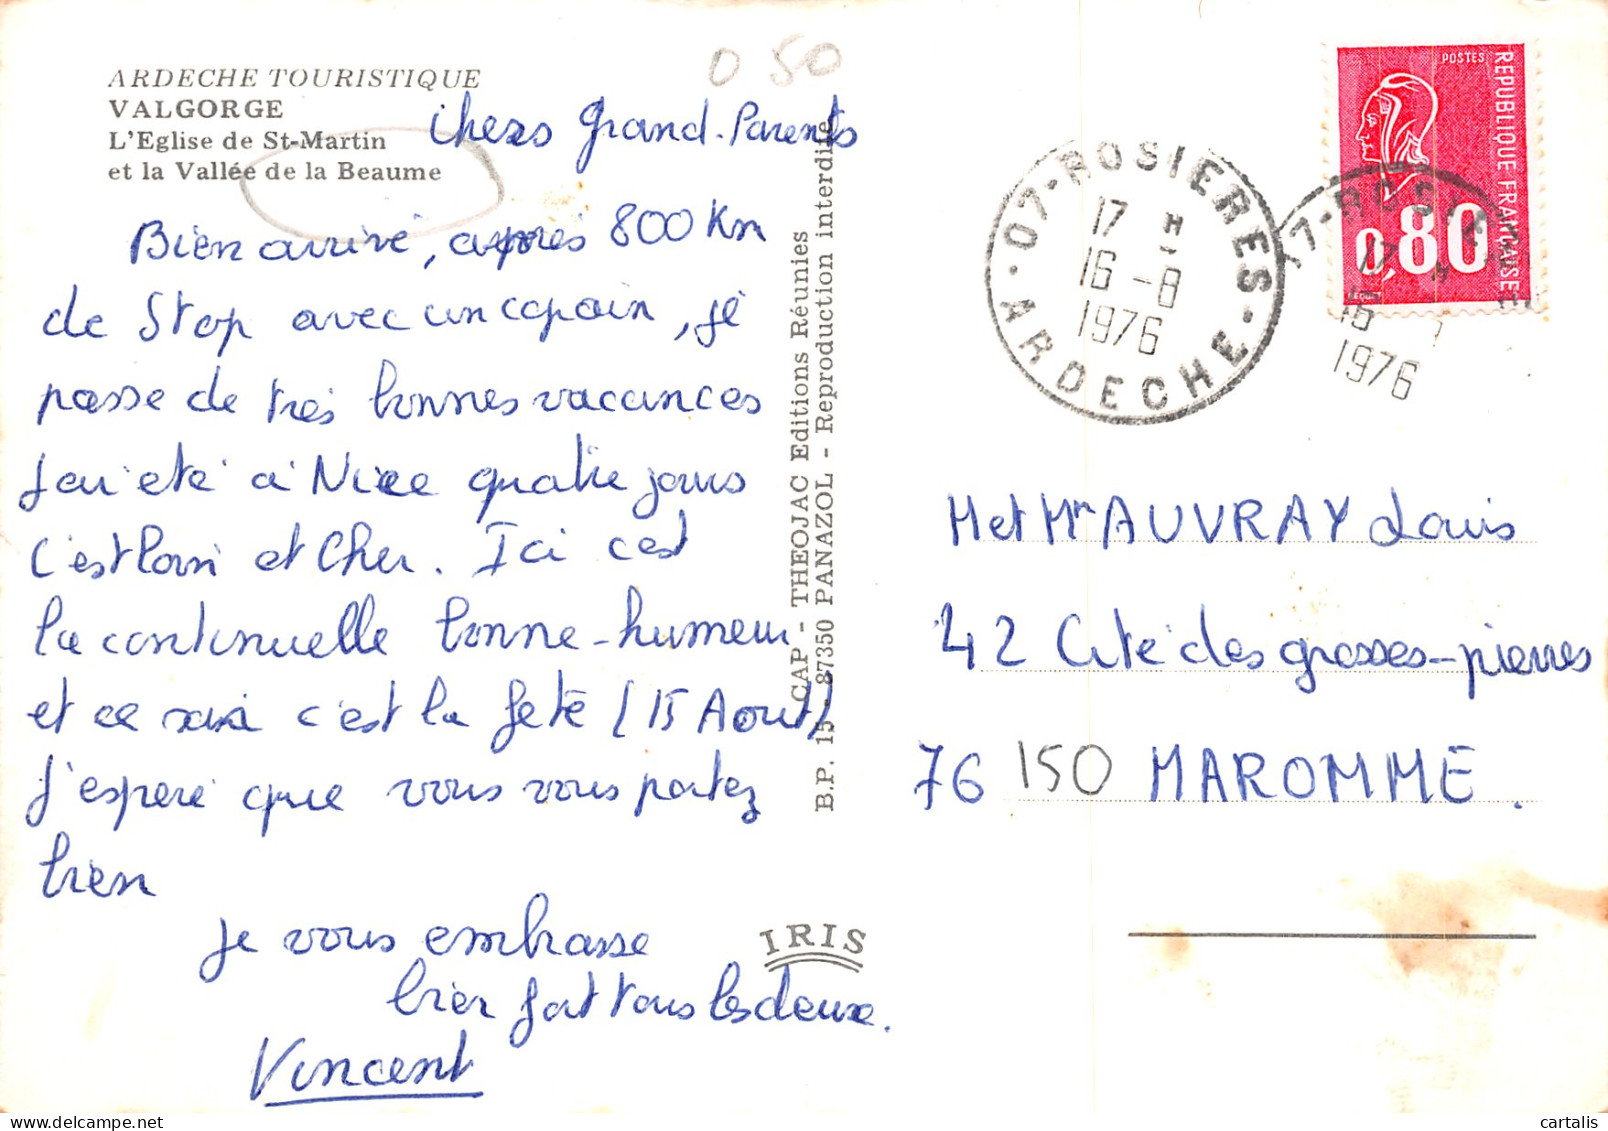 0 50
ARDECHE TOURISTIQUE
VALGORGE
L'Eglise de St-Martin
et la Vallée de la Beaume
Chers Grand-Parents
Bien arrivé, après 800 Km
de Stop avec un copain, je
passe de très bonnes vacances
J'ai été à Nice quatre jours
c'est loin et cher. Ici c'est
la continuelle bonne-humeur
et ce soir c'est la fête (15 Aout)
J'espere que vous vous portez
bien
Je vous embrasse
bien fort tous les deux.
Vincent
CAP - THEOJAC Editions Réunies
B.P. 15 - 87350 PANAZOL - Reproduction interdite
IRIS
POSTES
REPUBLIQUE FRANÇAISE
0,80
07-ROSIERES
17 H
16-8
1976
ARDECHE
07-ROSIERES
17 H
16
1976
M et Mme AUVRAY Louis
42 Cité des grosses-pierres
76 150 MAROMME.
cartalis